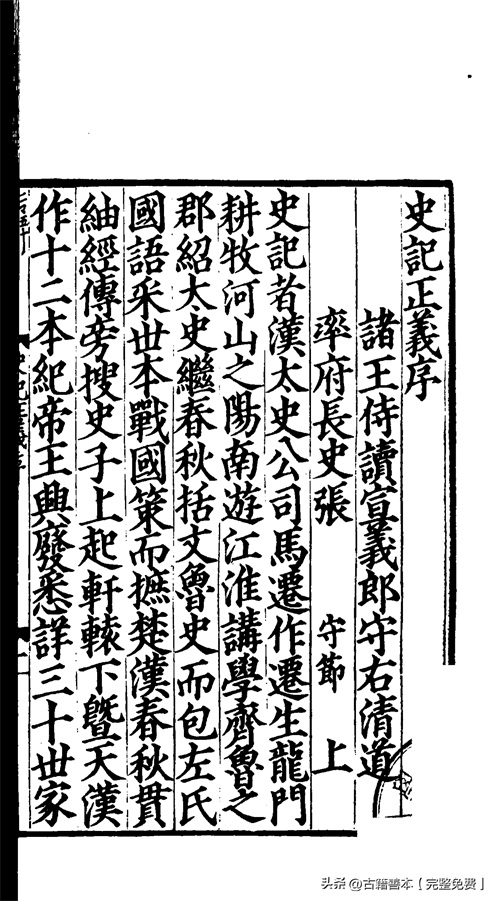 史記正義序
諸王侍讀宣義郎守右清道
率府長史張 守節 上
史記者漢太史公司馬遷作遷生龍門
耕牧河山之陽南遊江淮講學齊魯之
郡紹太史繼春秋括文魯史而包左氏
國語采世本戰國策而摭楚漢春秋貫
紬經傳旁搜史子上起軒轅下曁天漢
作十二本紀帝王興廢悉詳三十世家
头条 @古籍善本【完整免费】